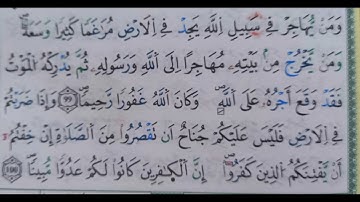 وَمَنْ يُهَاجِرْ فِي سَبِيلِ اللَّهِ يَجِدْ فِي الْأَرْضِ مُرَاغَمًا كَثِيرًا وَسَعَةً
وَمَنْ يَخْرُجْ مِنْ بَيْتِهِ مُهَاجِرًا إِلَى اللَّهِ وَرَسُولِهِ ثُمَّ يُدْرِكْهُ الْمَوْتُ
فَقَدْ وَقَعَ أَجْرُهُ عَلَى اللَّهِ وَكَانَ اللَّهُ غَفُورًا رَحِيمًا ۝٩٩ وَإِذَا ضَرَبْتُمْ
فِي الْأَرْضِ فَلَيْسَ عَلَيْكُمْ جُنَاحٌ أَنْ تَقْصُرُوا مِنَ الصَّلَاةِ إِنْ خِفْتُمْ
أَنْ يَفْتِنَكُمُ الَّذِينَ كَفَرُوا إِنَّ الْكَافِرِينَ كَانُوا لَكُمْ عَدُوًّا مُبِينًا ۝١٠٠